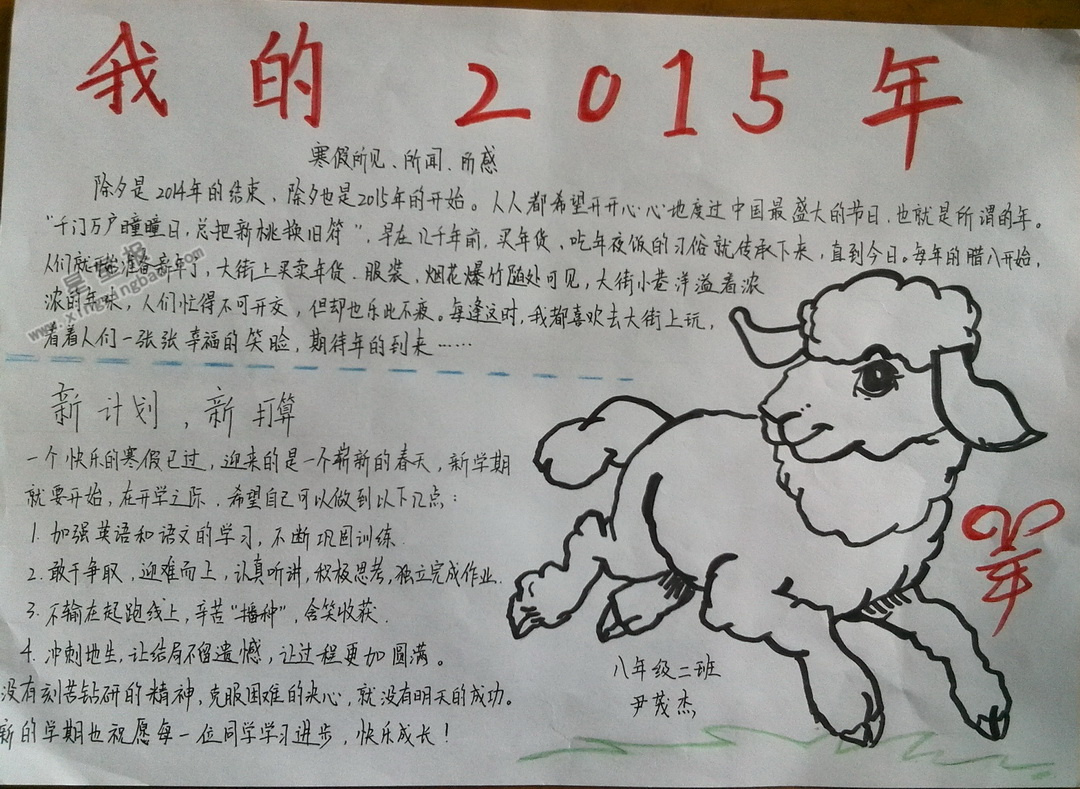 我的2015年
寒假所见、所闻、所感
除夕是2014年的结束，除夕也是2015年的开始。人人都希望开开心心地度过中国最盛大的节日，也就是所谓的年。
“千门万户曈曈日，总把新桃换旧符”，早在几千年前，买年货，吃年夜饭的习俗就传承下来，直到今日。每年的腊八开始，
人们就开始准备新年了，大街上买卖年货、服装、烟花爆竹随处可见，大街小巷洋溢着浓
浓的年味，人们忙得不可开交，但却也乐此不疲。每逢这时，我都喜欢去大街上玩，
看着人们一张张幸福的笑脸，期待年的到来……
新计划，新打算
一个快乐的寒假已过，迎来的是一个崭新的春天，新学期
就要开始，在开学之际，希望自己可以做到以下几点：
1. 加强英语和语文的学习，不断巩固训练.
2. 敢于争取，迎难而上，认真听讲，积极思考，独立完成作业.
3. 不输在起跑线上，辛苦“播种”，含笑收获.
4. 冲刺地生，让结局不留遗憾，让过程更加圆满。
没有刻苦钻研的精神，克服困难的决心，就没有明天的成功。
新的学期也祝愿每一位同学学习进步，快乐成长！
八年级二班
尹茂杰
羊
星星报
www.xingxingbao.com